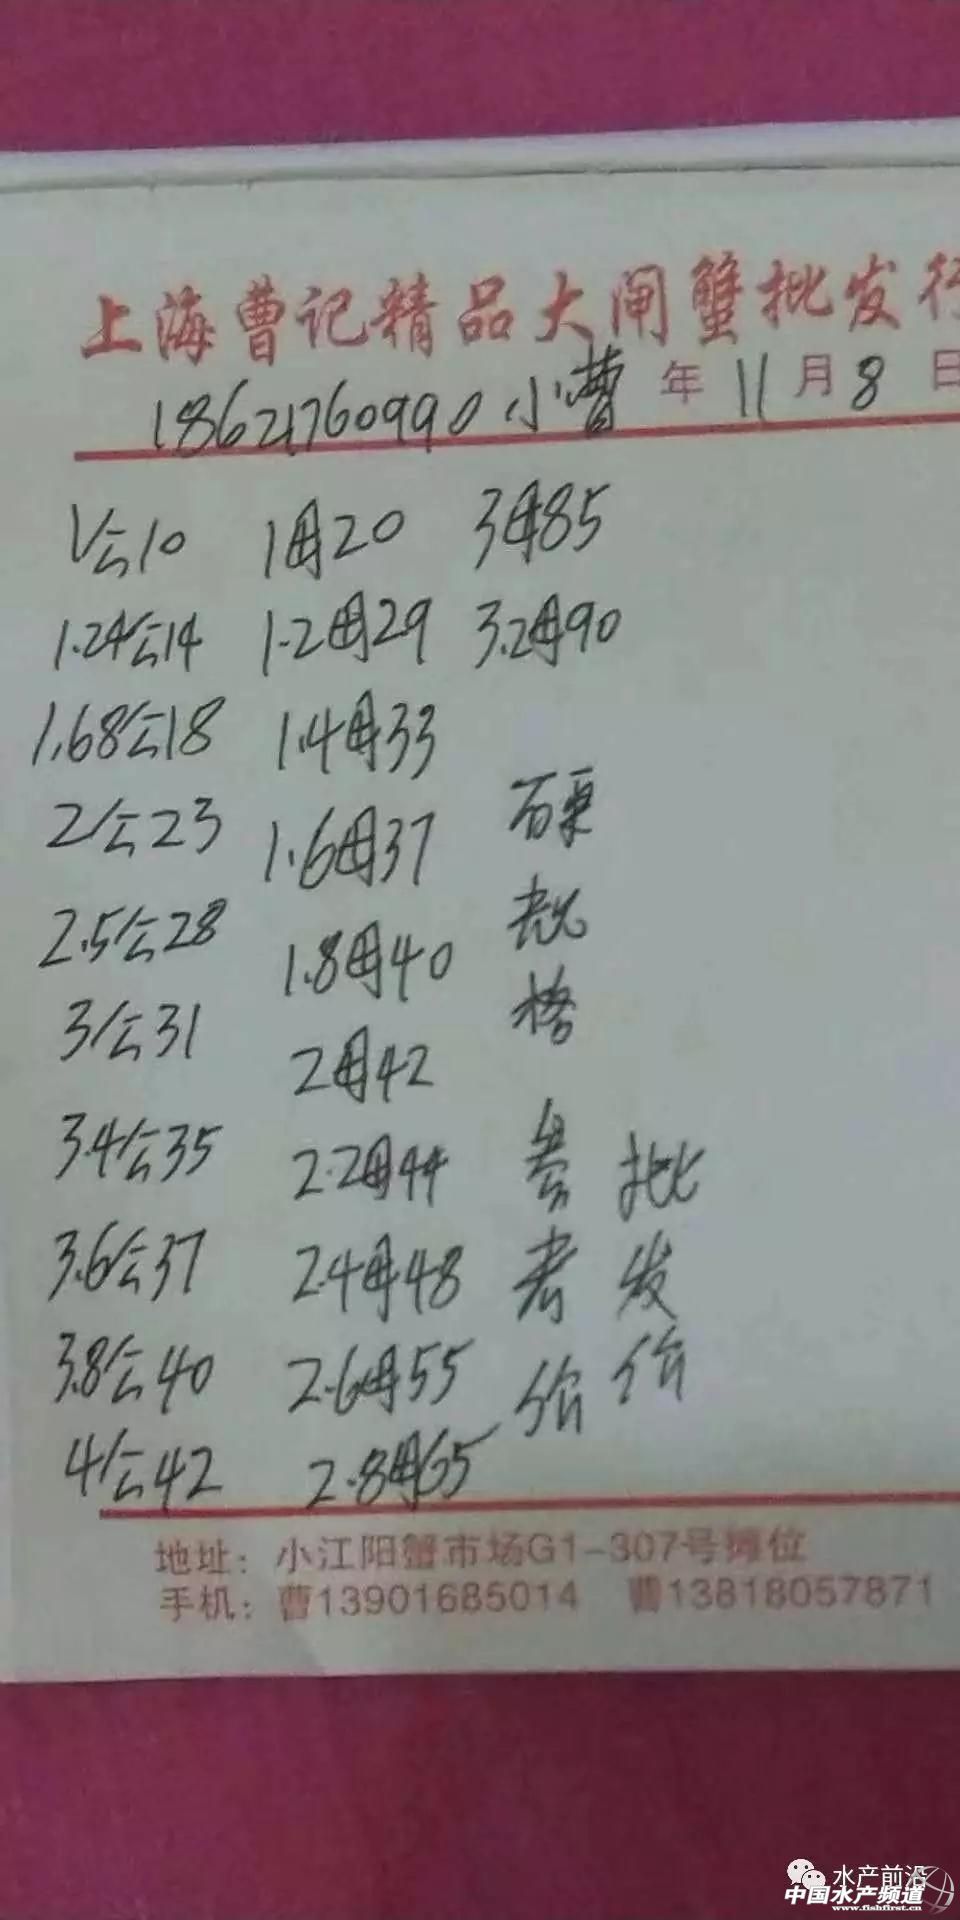 上海曹记精品大闸蟹批发行
18621760990 小曹 年 11 月 8 日
1公10 1母20 3母85
1.24公14 1.2母29 3.2母90
1.68公18 1.4母33
2公23 1.6母37
2.5公28 1.8母40
3公31 2母42
3.4公35 2.2母44
3.6公37 2.4母48
3.8公40 2.6母55
4公42 2.8母65
要
规
格
参考价
批发价
地址：小江阳蟹市场G1-307号摊位
手机：曹13901685014 曹13818057871
水产前沿
中国水产频道
www.fishfirst.cn